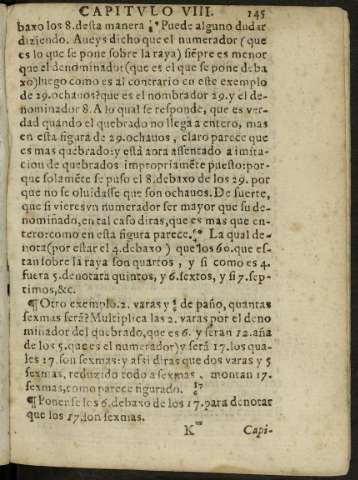 CAPITVLO VIII. 145
baxo los 8. desta manera 29/8 Puede alguno dudar
diziendo. Aueys dicho que el numerador (que
es lo que se pone sobre la raya) siẽpre es menor
que el denominador (que es el que se pone deba
xo) luego como es al contrario en este exemplo
de 29. ochauos? que es el nombrador 29. y el de-
nominador 8. A lo qual se responde, que es ver-
dad quando el quebrado no llega a entero, mas
en esta figura de 29. ochauos, claro parece que
es mas quebrado: y está aora assentado a imita-
cion de quebrados impropriamẽte puesto: por-
que solamẽte se puso el 8. debaxo de los 29. por
que no se oluidasse que son ochauos. De suerte,
que si vieres vn numerador ser mayor que su de-
nominador, en tal caso diras, que es mas que en-
tero: como en esta figura parece. La qual de-
nota (por estar el 4. debaxo) que los 60. que es-
tan sobre la raya son quartos, y si como es 4.
fuera 5. denotara quintos, y 6. sextos, y si 7. sep-
timos, &c.
¶ Otro exemplo. 2. varas y 5/6 de paño, quantas
sexmas serã? Multiplica las 2. varas por el deno
minador del quebrado, que es 6. y seran 12. aña
de los 5. que es el numerador) y serã 17. los qua-
les 17. son sexmas: y assi diras que dos varas y 5
sexmas, reduzido todo a sexmas, montan 17.
sexmas, como parece figurado. 17/6
¶ Ponense los 6. debaxo de los 17. para denotar
que los 17. son sexmas.
K Capi-